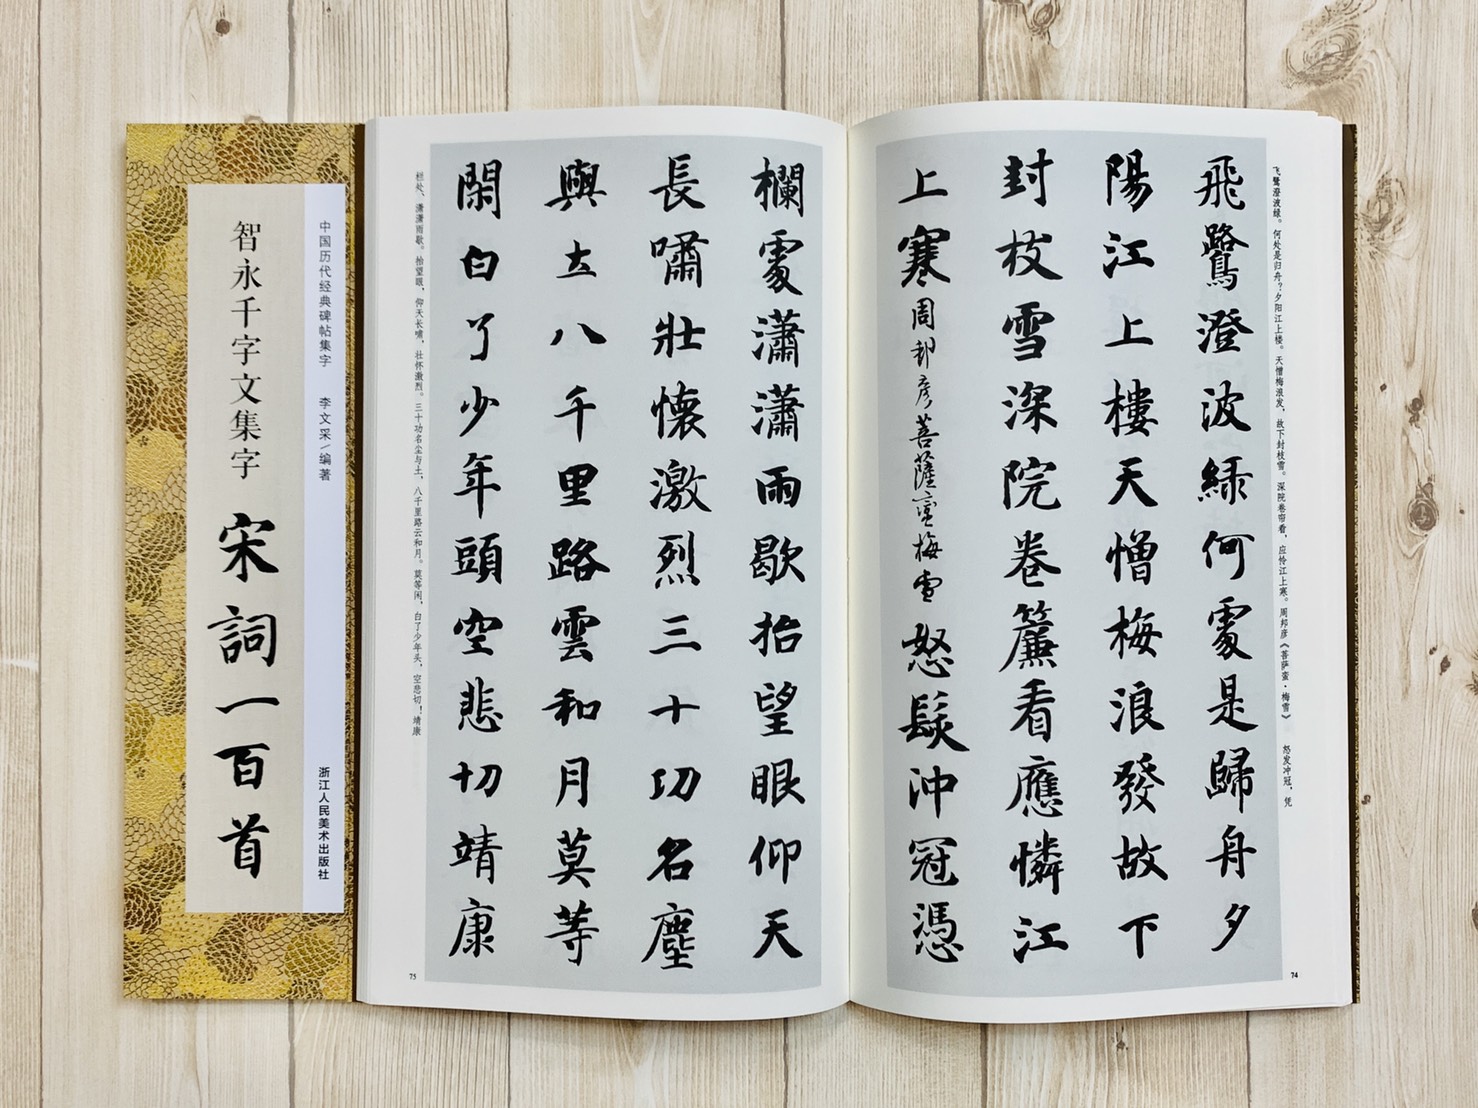 飛鷺澄波綠何處是歸舟夕
陽江上樓天憎梅浪發故下
封枝雪深院卷簾看應憐江
上寒周邦彦菩薩蠻梅雪怒髮沖冠憑
欄處瀟瀟雨歇抬望眼仰天
長嘯壯懷激烈三十功名塵
與土八千里路雲和月莫等
閑白了少年頭空悲切靖康
飞鹭澄波绿。何处是归舟?夕阳江上楼。天憎梅浪发,故下封枝雪。深院卷帘看,应怜江上寒。周邦彦《菩萨蛮·梅雪》 怒发冲冠,凭
栏处、潇潇雨歇。抬望眼,仰天长啸,壮怀激烈。三十功名尘与土,八千里路云和月。莫等闲,白了少年头,空悲切!靖康
74
75
中国历代经典碑帖集字 李文采/编著
浙江人民美术出版社
智永千字文集字 宋詞一百首